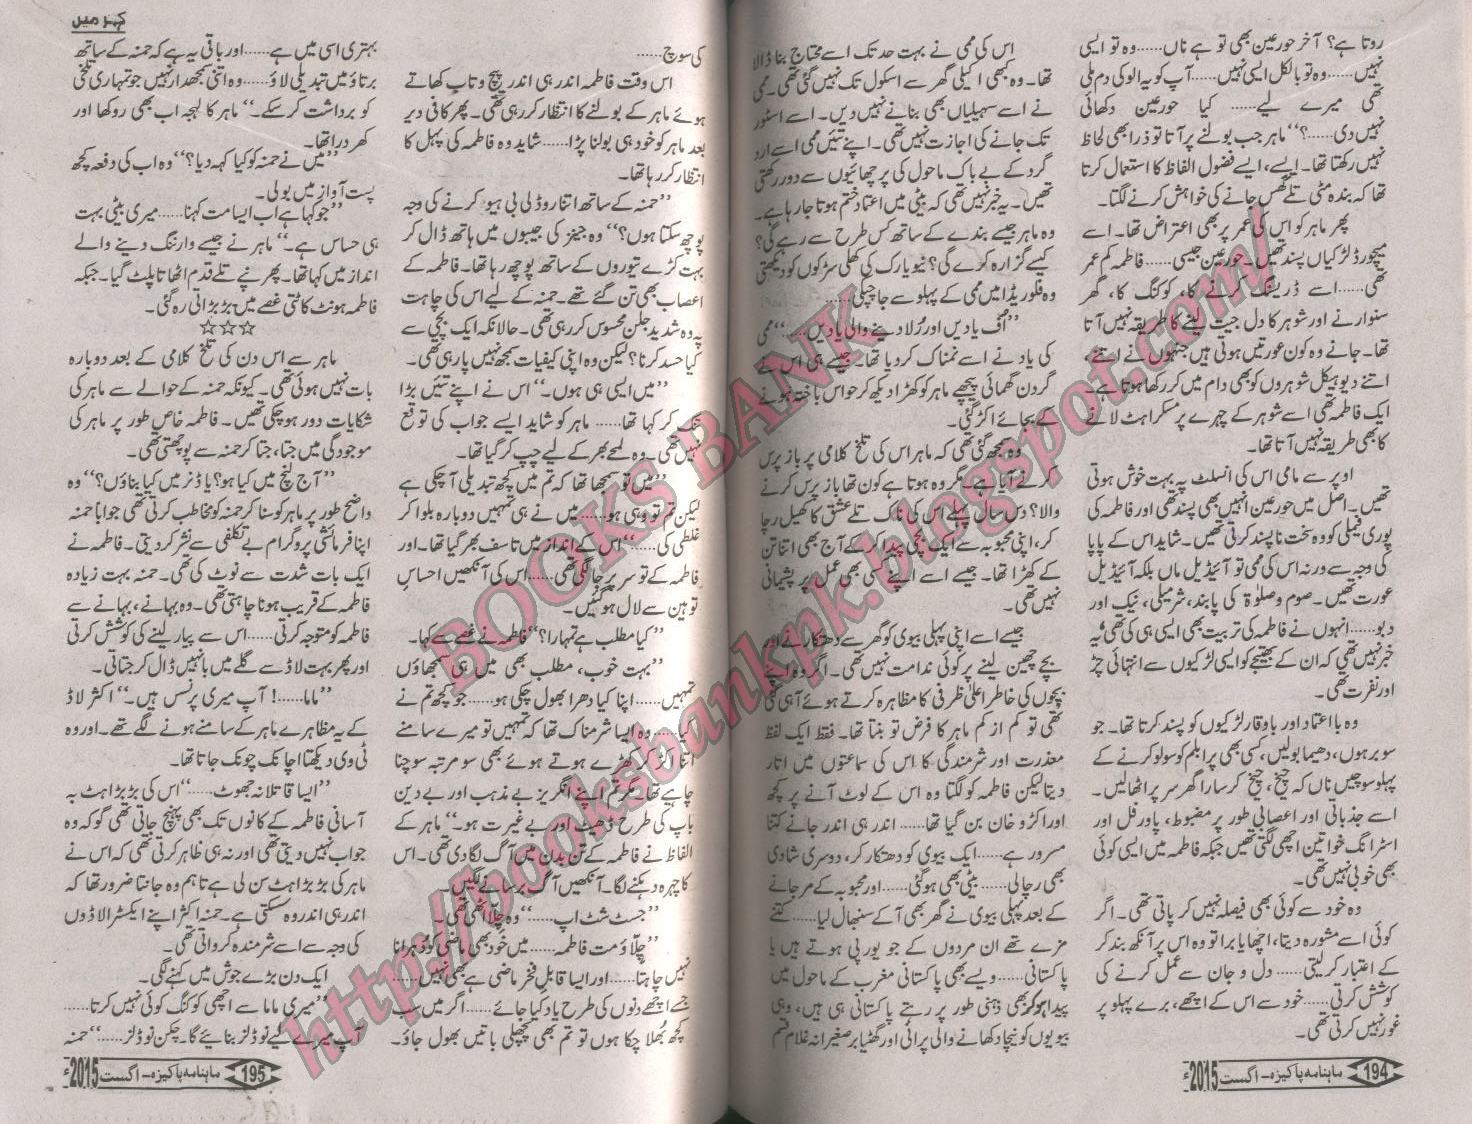 روتا ہے؟ آخر حورعین بھی تو ہے ناں...... وہ تو ایسی
نہیں...... وہ تو بالکل ایسی نہیں...... آپ کو یہ الو کی دم ملی
تھی میرے لیے...... کیا حورعین دکھائی
نہیں دی......؟“ ماہر جب بولنے پر آتا تو ذرا بھی لحاظ
نہیں رکھتا تھا۔ ایسے، ایسے فضول الفاظ کا استعمال کرتا
تھا کہ بندہ مٹی تلے گھس جانے کی خواہش کرنے لگتا۔
پھر ماہر کو اس کی عمر پر بھی اعتراض تھا۔ اسے
میچورڈ لڑکیاں پسند تھیں۔ حورعین جیسی...... فاطمہ کم عمر
تھی...... اسے ڈریسنگ کرنے کا، کوکنگ کا، گھر
سنوارنے اور شوہر کا دل جیت لینے کا طریقہ نہیں آتا
تھا۔ جانے وہ کون عورتیں ہوتی ہیں جنہوں نے اتنے،
اتنے دیو ہیکل شوہروں کو بھی دام میں کر رکھا ہوتا ہے۔
ایک فاطمہ تھی اسے شوہر کے چہرے پر مسکراہٹ لانے
کا بھی طریقہ نہیں آتا تھا۔
اوپر سے مامی اس کی انسلٹ پہ بہت خوش ہوتی
تھیں۔ اصل میں حورعین انہیں بھی پسند تھی اور فاطمہ کی
پوری فیملی کو وہ سخت ناپسند کرتی تھیں۔ شاید اس کے پاپا
کی وجہ سے ورنہ اس کی ممی تو آئیڈیل ماں بلکہ آئیڈیل
عورت تھیں۔ صوم و صلوٰۃ کی پابند، شرمیلی، نیک اور
دبو...... انہوں نے فاطمہ کی تربیت بھی ایسی ہی کی تھی یہ
خبر نہیں تھی کہ ان کے بھتیجے کو ایسی لڑکیوں سے انتہائی چڑ
اور نفرت تھی۔
وہ بااعتماد اور باوقار لڑکیوں کو پسند کرتا تھا۔ جو
سوبر ہوں، دھیما بولیں، کسی بھی پرابلم کو سولو کرنے کے
پہلو سوچیں ناں کہ چیخ، چیخ کر سارا گھر سر پر اٹھا لیں۔
اسے جذباتی اور اعصابی طور پر مضبوط، پاور فل اور
اسٹرانگ خواتین اچھی لگتی تھیں جبکہ فاطمہ میں ایسی کوئی
بھی خوبی نہیں تھی۔
وہ خود سے کوئی بھی فیصلہ نہیں کر پاتی تھی۔ اگر
کوئی اسے مشورہ دیتا، اچھا یا برا تو وہ اس پر آنکھ بند کر
کے اعتبار کر لیتی...... دل و جان سے عمل کرنے کی
کوشش کرتی...... خود سے اس کے اچھے، برے پہلو پر
غور نہیں کرتی تھی۔
194 ماہنامہ پاکیزہ۔ اگست 2015ء
اس کی ممی نے بہت حد تک اسے محتاج بنا ڈالا
تھا۔ وہ کبھی اکیلی گھر سے اسکول تک نہیں گئی تھی۔ ممی
نے اسے سہیلیاں بھی بنانے نہیں دیں۔ اسے اسٹور
تک جانے کی اجازت نہیں تھی۔ اپنے تئیں ممی اسے ارد
گرد کے بے باک ماحول کی پرچھائیوں سے دور رکھتی
تھیں۔ یہ خبر نہیں تھی کہ بیٹی میں اعتماد ختم ہوتا جا رہا ہے۔
وہ ماہر جیسے بندے کے ساتھ کس طرح سے رہے گی؟
کیسے گزارہ کرے گی؟ نیویارک کی کھلی سڑکوں کو دیکھتی
وہ فلوریڈا میں ممی کے پہلو سے جا چپکی......
”اُف یادیں اور رُلا دینے والی یادیں......“ ممی
کی یاد نے اسے نمناک کر دیا تھا۔ جیسے ہی اس نے
گردن گھمائی پیچھے ماہر کو کھڑا دیکھ کر حواس باختہ ہونے
کے بجائے اکڑ گئی۔
وہ سمجھ گئی تھی کہ ماہر اس کی تلخ کلامی پر باز پرس
کرنے آیا ہے۔ مگر وہ ہوتا ہے کون تھا باز پرس کرنے
والا؟ دس سال پہلے اس کی ناک تلے عشق کا کھیل رچا
کر، اپنی محبوبہ سے ایک بچی پیدا کر کے آج بھی اتنا تن
کے کھڑا تھا۔ جیسے اسے اپنے کسی بھی عمل پر پشیمانی
نہیں تھی۔
جیسے اسے اپنی پہلی بیوی کو گھر سے دھتکارنے اور
بچے چھین لینے پر کوئی ندامت نہیں تھی۔ اگر وہ اپنے
بچوں کی خاطر اعلیٰ ظرفی کا مظاہرہ کرتے ہوئے آ ہی گئی
تھی تو کم از کم ماہر کا فرض تو بنتا تھا۔ فقط ایک لفظ
معذرت اور شرمندگی کا اس کی سماعتوں میں اتار
دیتا لیکن فاطمہ کو لگتا وہ اس کے لوٹ آنے پر کچھ
اور اکڑو خان بن گیا تھا...... اندر ہی اندر جانے کتنا
مسرور ہے...... ایک بیوی کو دھتکار کر، دوسری شادی
بھی رچا لی...... بیٹی بھی ہو گئی...... اور محبوبہ کے مر جانے
کے بعد پہلی بیوی نے گھر بھی آ کے سنبھال لیا...... کتنے
مزے تھے ان مردوں کے جو یورپی ہوتے ہیں یا
پاکستانی...... ویسے بھی پاکستانی مغرب کے ماحول میں
پیدا ہو کر بھی ذہنی طور پر رہتے پاکستانی ہی ہیں، وہی
بیویوں کو نیچا دکھانے والی پرانی اور گھٹیا برصغیرانہ غلام قسم
کہر میں
کی سوچ......
اس وقت فاطمہ اندر ہی اندر پیچ و تاب کھاتے
ہوئے ماہر کے بولنے کا انتظار کر رہی تھی۔ پھر کافی دیر
بعد ماہر کو خود ہی بولنا پڑا...... شاید وہ فاطمہ کی پہل کا
انتظار کر رہا تھا۔
”حمنہ کے ساتھ اتنا روڈلی بی ہیو کرنے کی وجہ
پوچھ سکتا ہوں؟“ وہ جینز کی جیبوں میں ہاتھ ڈال کر
بہت کڑے تیوروں کے ساتھ پوچھ رہا تھا۔ فاطمہ کے
اعصاب بھی تن گئے تھے۔ حمنہ کے لیے اس کی چاہت
پہ وہ شدید جلن محسوس کر رہی تھی۔ حالانکہ ایک بچی سے
کیا حسد کرنا؟ لیکن وہ اپنی کیفیات سمجھ نہیں پا رہی تھی۔
”میں ایسی ہی ہوں۔“ اس نے اپنے تئیں بڑا
تنک کر کہا تھا...... ماہر کو شاید ایسے جواب کی توقع
نہیں تھی۔ وہ لمحے بھر کے لیے چپ کر گیا تھا۔
”میں تو سمجھا تھا کہ تم میں کچھ تبدیلی آ چکی ہے
لیکن تم تو وہی ہو...... میں نے ہی تمہیں دوبارہ بلوا کر
غلطی کی......“ اس کے انداز میں تاسف بھر گیا تھا۔ اور
فاطمہ کے تو سر پر جا لگی تھی...... اس کی آنکھیں احساسِ
توہین سے لال ہو گئیں۔
”کیا مطلب ہے تمہارا؟“ فاطمہ نے غصے سے کہا۔
”بہت خوب، مطلب بھی میں ہی سمجھاؤں
تمہیں...... اپنا کیا دھرا بھول چکی ہو...... جو کچھ تم نے
کیا...... وہ ایسا شرمناک تھا کہ تمہیں تو میرے سامنے
اتنا اکڑ کر کھڑے ہوتے ہوئے بھی سو مرتبہ سوچنا
چاہیے تھا۔ مگر تم اپنے انگریز بے مذہب اور بے دین
باپ کی طرح ڈھیٹ اور بے غیرت ہو۔“ ماہر کے
الفاظ نے فاطمہ کے تن بدن میں آگ لگا دی تھی۔ اس
کا چہرہ دہکنے لگا۔ آنکھیں آگ برسانے لگیں۔
”جسٹ شٹ اپ......“ وہ چلّا اٹھی تھی۔
”چلّاؤ مت فاطمہ...... میں خود بھی ماضی کو دُہرانا
نہیں چاہتا...... اور ایسا قابلِ فخر ماضی ہے بھی نہیں......
جسے اچھے دنوں کی طرح یاد کیا جائے...... اگر میں سب
کچھ بھُلا چکا ہوں تو تم بھی پچھلی باتیں بھول جاؤ۔
بہتری اسی میں ہے...... اور باقی یہ ہے کہ حمنہ کے ساتھ
برتاؤ میں تبدیلی لاؤ...... وہ اتنی سمجھدار نہیں جو تمہاری تلخی
کو برداشت کر سکے۔“ ماہر کا لہجہ اب بھی روکھا اور
کھردرا تھا۔
”میں نے حمنہ کو کیا کہہ دیا؟“ وہ اب کی دفعہ کچھ
پست آواز میں بولی۔
”جو کہا ہے اب ایسا مت کہنا...... میری بیٹی بہت
ہی حساس ہے۔“ ماہر نے جیسے وارننگ دینے والے
انداز میں کہا تھا۔ پھر نپے تلے قدم اٹھاتا پلٹ گیا۔ جبکہ
فاطمہ ہونٹ کاٹتی غصے میں بڑبڑاتی رہ گئی۔
☆☆☆
ماہر سے اس دن کی تلخ کلامی کے بعد دوبارہ
بات نہیں ہوئی تھی۔ کیونکہ حمنہ کے حوالے سے ماہر کی
شکایات دور ہو چکی تھیں۔ فاطمہ خاص طور پر ماہر کی
موجودگی میں جتا، جتا کر حمنہ سے پوچھتی تھی۔
”آج لنچ میں کیا ہو؟ یا ڈنر میں کیا بناؤں؟“ وہ
واضح طور پر ماہر کو سنا کر حمنہ کو مخاطب کرتی تھی جواباً حمنہ
اپنا فرمائشی پروگرام بے تکلفی سے نشر کر دیتی۔ فاطمہ نے
ایک بات شدت سے نوٹ کی تھی۔ حمنہ بہت زیادہ
فاطمہ کے قریب ہونا چاہتی تھی۔ وہ بہانے، بہانے سے
فاطمہ کو متوجہ کرتی...... اس سے پیار لینے کی کوشش کرتی
اور پھر بہت لاڈ سے گلے میں بانہیں ڈال کر جتاتی۔
”ماما......! آپ میری پرنسس ہیں۔“ اکثر لاڈ
کے یہ مظاہرے ماہر کے سامنے ہونے لگے تھے۔ اور وہ
ٹی وی دیکھتا اچانک چونک جاتا تھا۔
”ایسا قاتلانہ جھوٹ......“ اس کی بڑبڑاہٹ بہ
آسانی فاطمہ کے کانوں تک بھی پہنچ جاتی تھی گو کہ وہ
جواب نہیں دیتی تھی اور نہ ہی ظاہر کرتی تھی کہ اس نے
ماہر کی بڑبڑاہٹ سن لی ہے تاہم وہ جانتا ضرور تھا کہ
اندر ہی اندر وہ سکتی ہے۔ حمنہ اکثر اپنے ایکسٹرا لاڈوں
کی وجہ سے اسے شرمندہ کرواتی تھی۔
ایک دن بڑے جوش میں کہنے لگی۔
”میری ماما سے اچھی کوکنگ کوئی نہیں کرتا......
آپ میرے لیے نوڈلز بنائیے گا۔ چکن نوڈلز......“ حمنہ
195 ماہنامہ پاکیزہ۔ اگست 2015ء
BOOKS BANK
http://booksbankpk.blogspot.com/